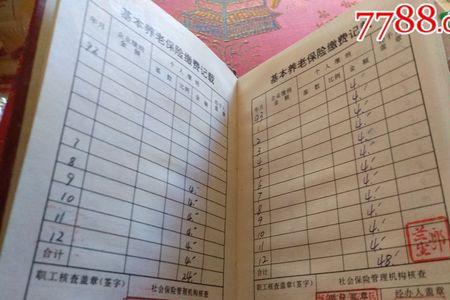 7788.c
基本养老保险缴费记载
年月 企业缴纳金额 个人缴纳
基数 比例 金额
92
7
8
9 4.-
10 4.-
11 4.-
12 4.-
合计 24.-
职工核查盖章(签字) 社会保险管理机构核查
基本养老保险缴费记载
年月 企业缴纳金额 个人缴纳 盖章
基数 比例 金额
93
1 4.-
2 4.-
3 4.-
4 4.-
5 4.-
6 4.-
7 4.-
8 4.-
9 4.-
10 4.-
11 4.-
12 4.-
合计 48.-
职工核查盖章(签字) 社会保险管理机构核查
经办人盖章